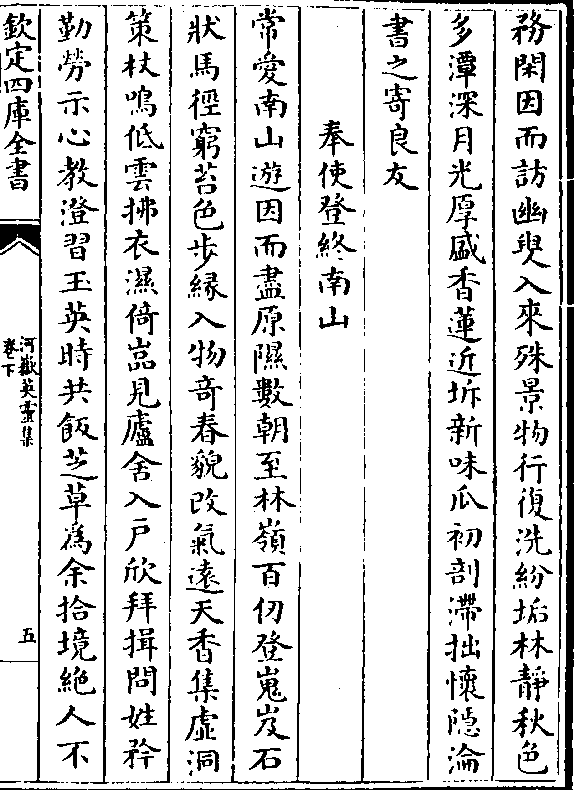 務閑因而訪幽叟入來殊景物行復洗紛垢林靜秋色
多潭深月光厚盛香蓮近坼新味瓜初剖滯拙懷隱淪
書之寄良友
奉使登終南山
常愛南山遊因而盡原隰數朝至林嶺百仞登嵬岌石
狀馬徑窮苔色步縁入物奇春貌改氣遠天香集虛洞
策杖鳴低雲拂衣濕倚嵓見廬舍入戸欣拜揖問姓矜
勤勞示心教澄習玉英時共飯芝草為余拾境絶人不
欽定四庫全書
河嶽英靈集
卷下
五